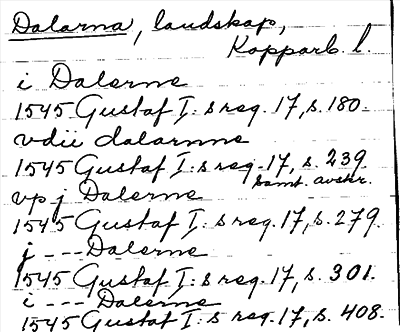 Dalarna, landskap,
Kopparb. l.
i Dalerne
1545 Gustaf I:s reg. 17, s. 180.
vdii dalarnne
1545 Gustaf I:s reg. 17, s. 239
samt. avskr.
vp j Dalerne
1545 Gustaf I:s reg. 17, s. 279.
j --- Dalerne
1545 Gustaf I:s reg. 17, s. 301.
i --- Dalerne
1545 Gustaf I:s reg. 17, s. 408.